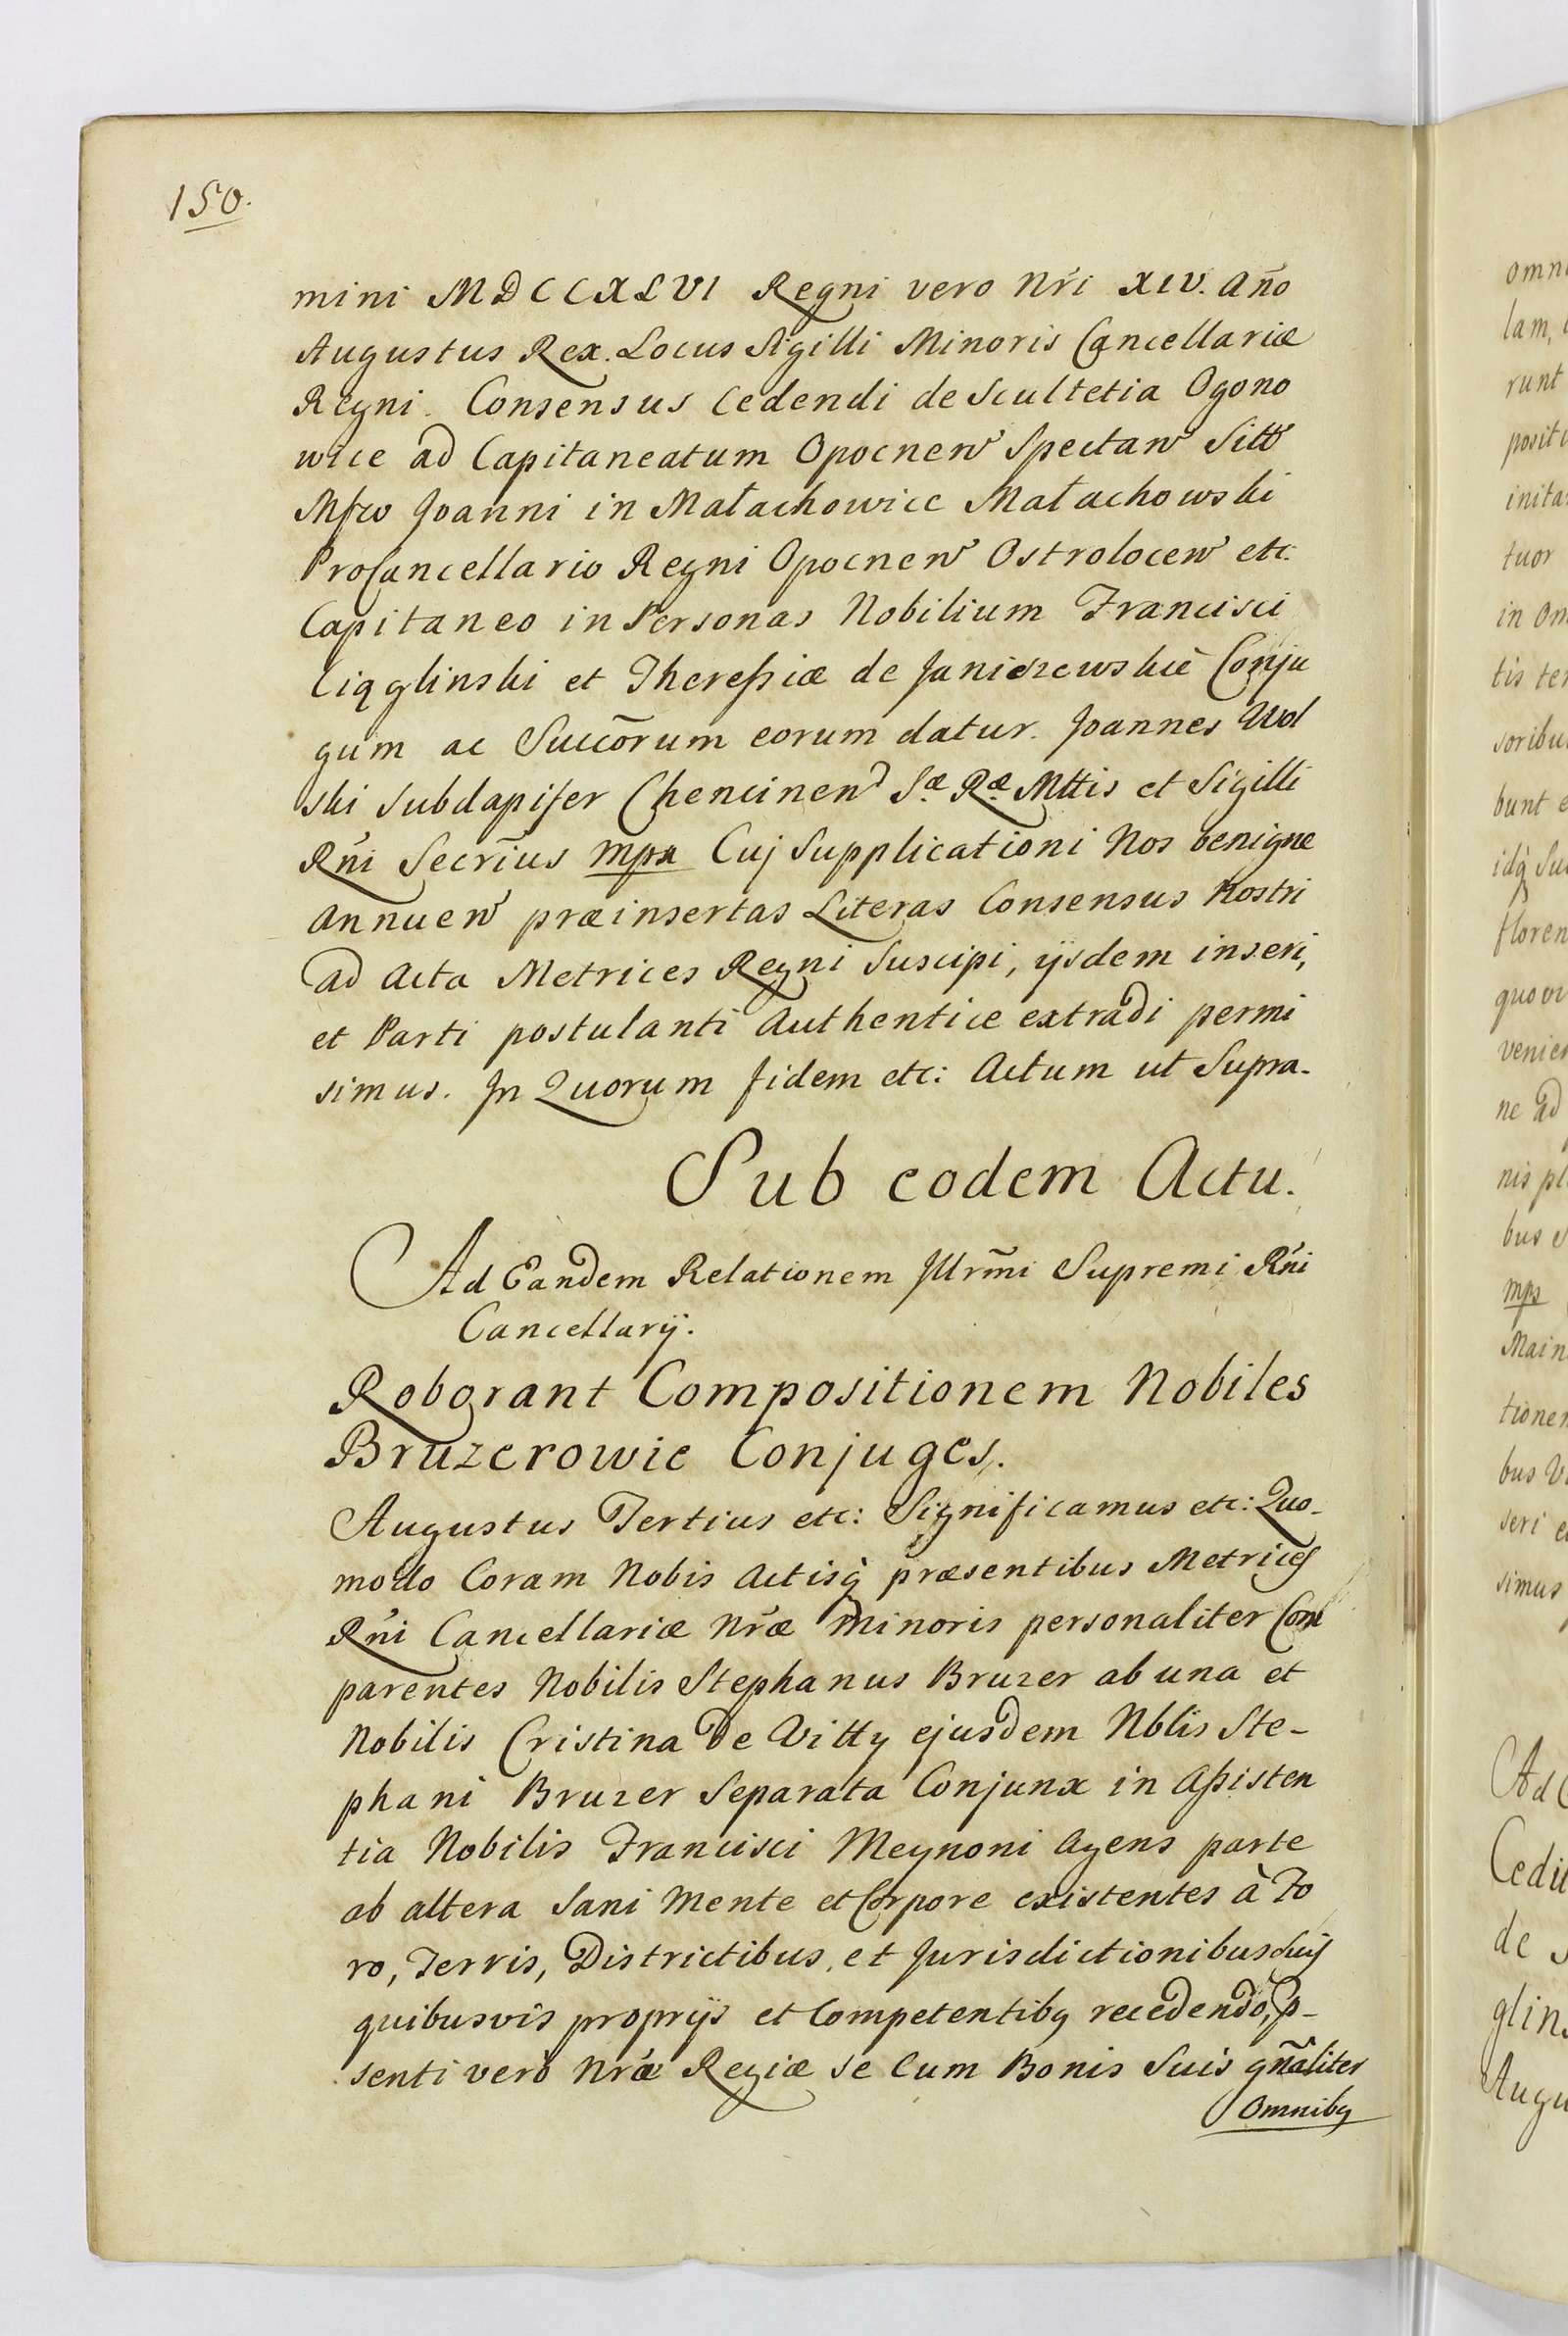 150.
mini MDCCXLVI Regni vero Nri XIV. Año
Augustus Rex. Locus Sigilli Minoris Cancellariæ
Regni. Consensus Cedendi de Scultetia Ogono
wice ad Capitaneatum Opocnen Spectan
Joanni in Małachowice Małachowski
ProCancellario Regni Opocnen Ostrolocen etc:
Capitaneo in Personas Nobilium Francisci
Ciągliński et Theressiæ de Janiszewskie Conju
gum ac Succõrum eorum datur. Joannes Wol
ski Subdapifer Chencinen Sæ Ræ Mttis et Sigilli
Rñi Secrius mpa Cuj Supplicationi Nos benigne
annuen præinsertas Literas Consensus Nostri
ad Acta Metrices Regni Suscipi, ijsdem inseri,
et Parti postulanti Authentice extradi permi
simus. In Quorum fidem etc: Actum ut Supra.
Sub eodem Actu.
Ad Eandem Relationem Illrmi Supremi Rñi
Cancellarij.
Roborant Compositionem Nobiles
Bruzerowie Conjuges.
Augustus Tertius etc: Significamus etc: Quo-
modo Coram Nobis Actisq̀ præsentibus Metrices
Rñi Cancellariæ Nræ Minoris personaliter Com
parentes Nobilis Stephanus Bruzer ab una et
Nobilis Cristina de Vitty ejusdem Nblis Ste-
phani Bruzer Separata Conjunx in Assisten
tia Nobilis Francisci Meynoni Agens parte
ab altera Sani Mente et Corpore existentes à Fo
ro, Terris, Districtibus, et Jurisdictionibus Suis
quibusvis proprijs et Competentibq recedendo, p-
senti verò Nræ Regiæ se Cum Bonis Suis gñaliter
Omnibq